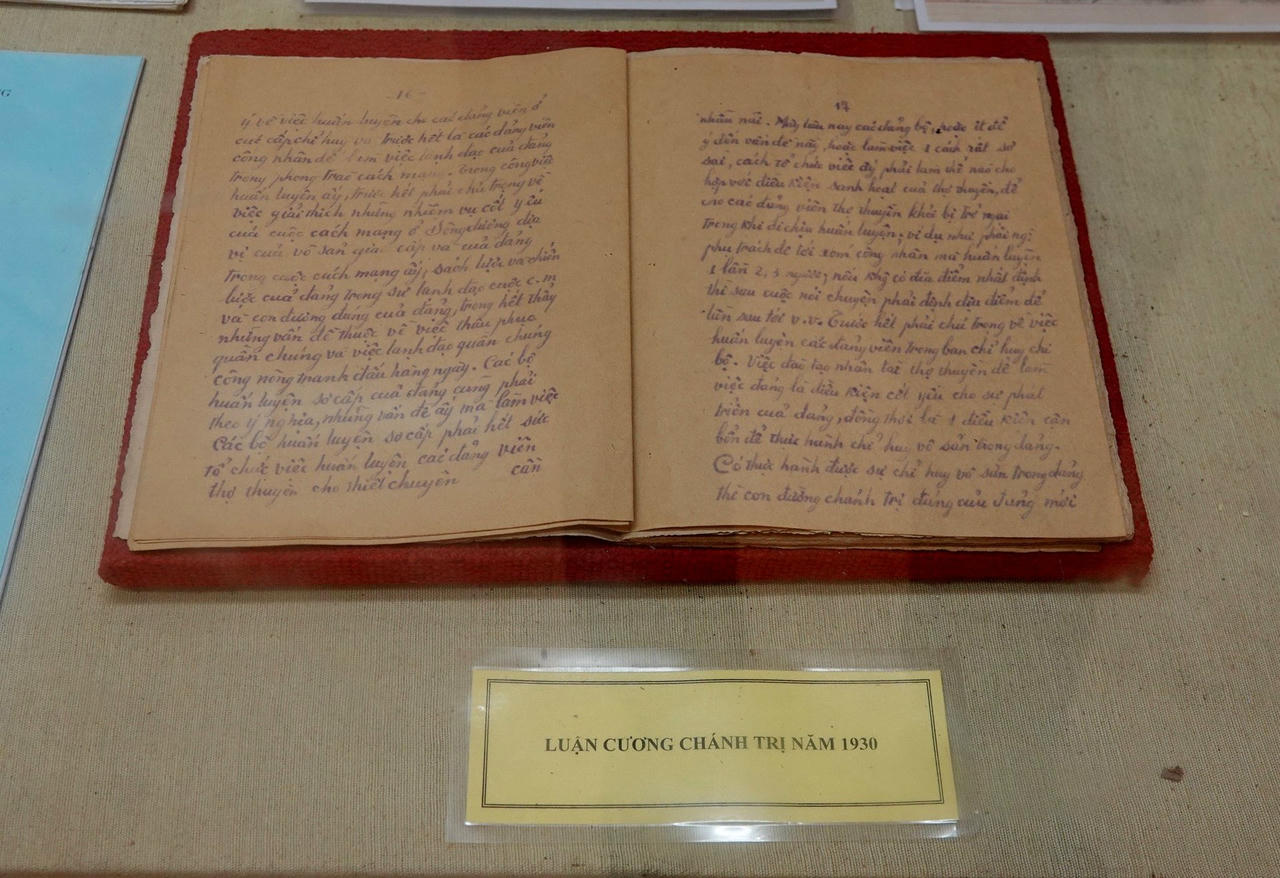 NG
-16-
ý về việc huấn luyện cho các đảng viên ở
các cấp chỉ huy và trước hết là các đảng viên
công nhân để làm việc lãnh đạo của đảng
trong phong trào cách mạng. Trong công việc
huấn luyện ấy, trước hết phải chú trọng về
việc giải thích những nhiệm vụ cốt yếu
của cuộc cách mạng ở Đông dương địa
vị của vô sản giai cấp và của đảng
trong cuộc cách mạng ấy, sách lược và chiến
lược của đảng trong sự lãnh đạo cuộc c.m
và con đường đúng của đảng, trong hết thảy
những vấn đề thuộc về việc thâu phục
quần chúng và việc lãnh đạo quần chúng
công nông tranh đấu hàng ngày. Các bộ
huấn luyện sơ cấp của đảng cũng phải
theo ý nghĩa, những vấn đề ấy mà làm việc
Các bộ huấn luyện sơ cấp phải hết sức
tổ chức việc huấn luyện các đảng viên
thợ thuyền cho thiết chuyên cần
17
nhẫn nại. Mấy lâu nay các đảng bộ, hoặc ít để
ý đến vấn đề nầy, hoặc làm việc 1 cách rất sơ
sài, cách tổ chức việc ấy phải làm thế nào cho
hợp với điều kiện sanh hoạt của thợ thuyền, để
cho các đảng viên thợ thuyền khỏi bị trở ngại
trong khi đi chịu huấn luyện. ví dụ như phải
phụ trách để tới xóm công nhân mà huấn luyện
1 lần 2, 3 người; nếu khg có địa điểm nhất định
thì sau cuộc nói chuyện phải định địa điểm để
lần sau tới v.v. Trước hết phải chú trọng về việc
huấn luyện các đảng viên trong ban chỉ huy chi
bộ. Việc đào tạo nhân tài thợ thuyền để làm
việc đảng là điều kiện cốt yếu cho sự phát
triển của đảng, đồng thời là 1 điều kiện căn
bổn để thực hành chỉ huy vô sản trong đảng.
Có thực hành được sự chỉ huy vô sản trong đảng
thì con đường chánh trị đúng của đảng mới
LUẬN CƯƠNG CHÁNH TRỊ NĂM 1930